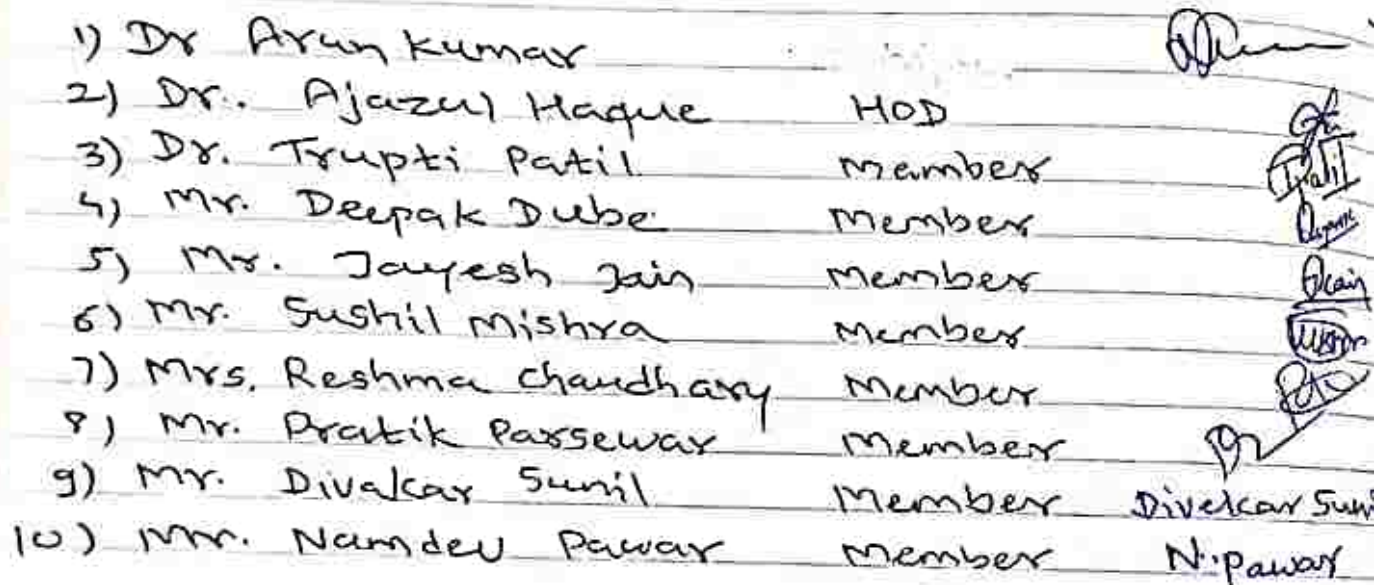 1) Dr Arun Kumar
2) Dr. Ajazul Haque HOD
3) Dr. Trupti Patil Member Tpatil
4) Mr. Deepak Dube Member
5) Mr. Jayesh Jain Member
6) Mr. Sushil Mishra Member
7) Mrs. Reshma Chaudhary Member
8) Mr. Pratik Parsewar Member
9) Mr. Divakar Sunil Member Divekar Suni
10) Mr. Namdev Pawar Member N.pawar